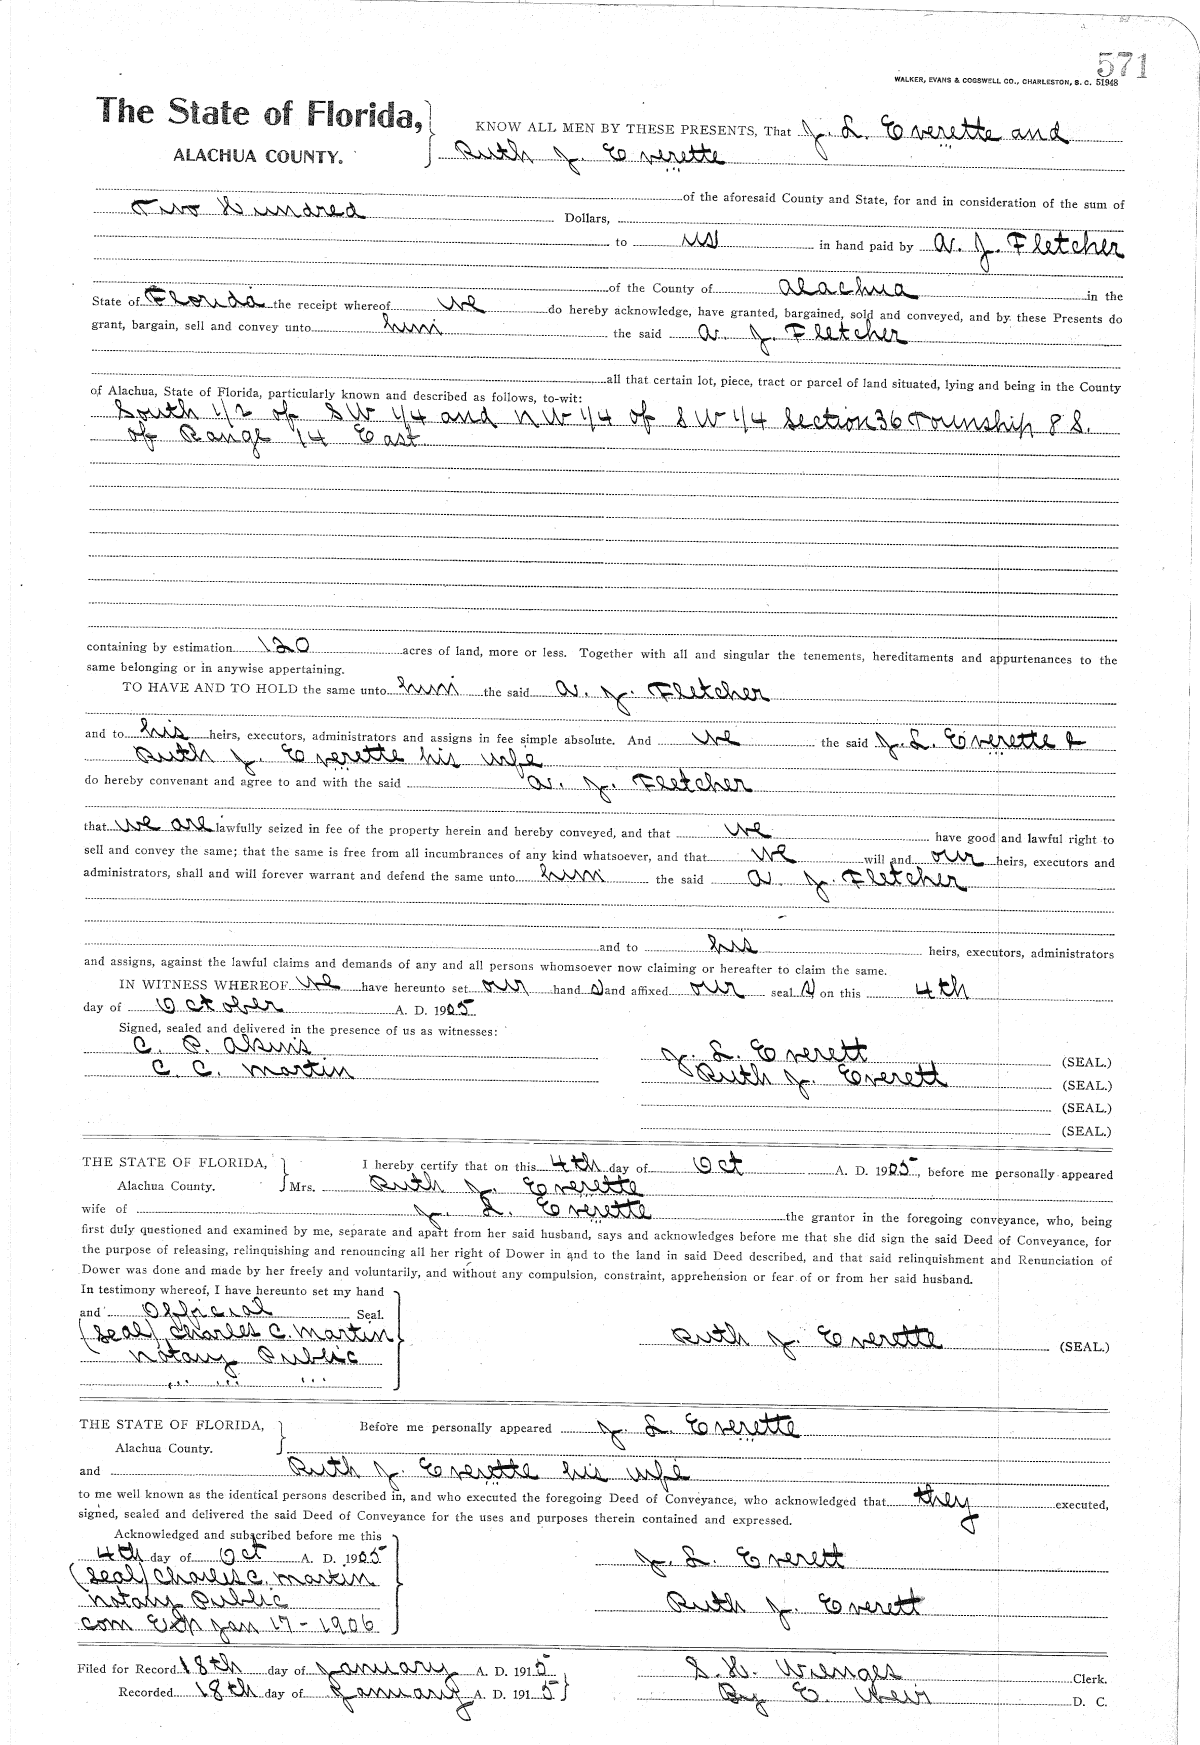 571
WALKER, EVANS & COGSWELL CO., CHARLESTON, S. C. 51948
The State of Florida,
ALACHUA COUNTY.
KNOW ALL MEN BY THESE PRESENTS, That J. L. Everette and
Ruth J. Everette
of the aforesaid County and State, for and in consideration of the sum of
Two Hundred Dollars,
to us in hand paid by A. J. Fletcher
of the County of Alachua in the
State of Florida the receipt whereof we do hereby acknowledge, have granted, bargained, sold and conveyed, and by these Presents do
grant, bargain, sell and convey unto him the said A. J. Fletcher
all that certain lot, piece, tract or parcel of land situated, lying and being in the County
of Alachua, State of Florida, particularly known and described as follows, to-wit:
South 1/2 of SW 1/4 and NW 1/4 of SW 1/4 Section 36 Township 8 S.
of Range 14 East
containing by estimation 120 acres of land, more or less. Together with all and singular the tenements, hereditaments and appurtenances to the
same belonging or in anywise appertaining.
TO HAVE AND TO HOLD the same unto him the said A. J. Fletcher
and to his heirs, executors, administrators and assigns in fee simple absolute. And we the said J. L. Everette &
Ruth J. Everette his wife
do hereby convenant and agree to and with the said A. J. Fletcher
that we are lawfully seized in fee of the property herein and hereby conveyed, and that we have good and lawful right to
sell and convey the same; that the same is free from all incumbrances of any kind whatsoever, and that we will and our heirs, executors and
administrators, shall and will forever warrant and defend the same unto him the said A. J. Fletcher
and to his heirs, executors, administrators
and assigns, against the lawful claims and demands of any and all persons whomsoever now claiming or hereafter to claim the same.
IN WITNESS WHEREOF we have hereunto set our hand s and affixed our seal s on this 4th
day of October A. D. 1905
Signed, sealed and delivered in the presence of us as witnesses:
C. P. Akins
C. C. Martin
J. L. Everett (SEAL.)
Ruth J. Everett (SEAL.)
(SEAL.)
(SEAL.)
THE STATE OF FLORIDA,
Alachua County.
I hereby certify that on this 4th day of Oct A. D. 1905, before me personally appeared
Mrs. Ruth J. Everette
wife of J. L. Everette the grantor in the foregoing conveyance, who, being
first duly questioned and examined by me, separate and apart from her said husband, says and acknowledges before me that she did sign the said Deed of Conveyance, for
the purpose of releasing, relinquishing and renouncing all her right of Dower in and to the land in said Deed described, and that said relinquishment and Renunciation of
Dower was done and made by her freely and voluntarily, and without any compulsion, constraint, apprehension or fear of or from her said husband.
In testimony whereof, I have hereunto set my hand
and Official Seal.
(Seal) Charles C. Martin
Notary Public
Ruth J. Everette (SEAL.)
THE STATE OF FLORIDA,
Alachua County.
Before me personally appeared J L Everette
and Ruth J. Everette his wife
to me well known as the identical persons described in, and who executed the foregoing Deed of Conveyance, who acknowledged that they executed,
signed, sealed and delivered the said Deed of Conveyance for the uses and purposes therein contained and expressed.
Acknowledged and subscribed before me this
4th day of Oct A. D. 1905
(Seal) Charles C. Martin
Notary Public
Com Exp Jan 17-1906
J. L. Everett
Ruth J Everett
Filed for Record 18th day of January A. D. 1915
Recorded 18th day of January A. D. 1915
S. H. Wienges Clerk.
By E. Weir D. C.